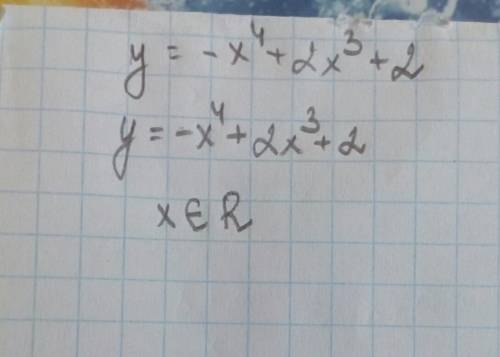 y = -x⁴ + 2x³ + 2
y = -x⁴ + 2x³ + 2
x ∈ R